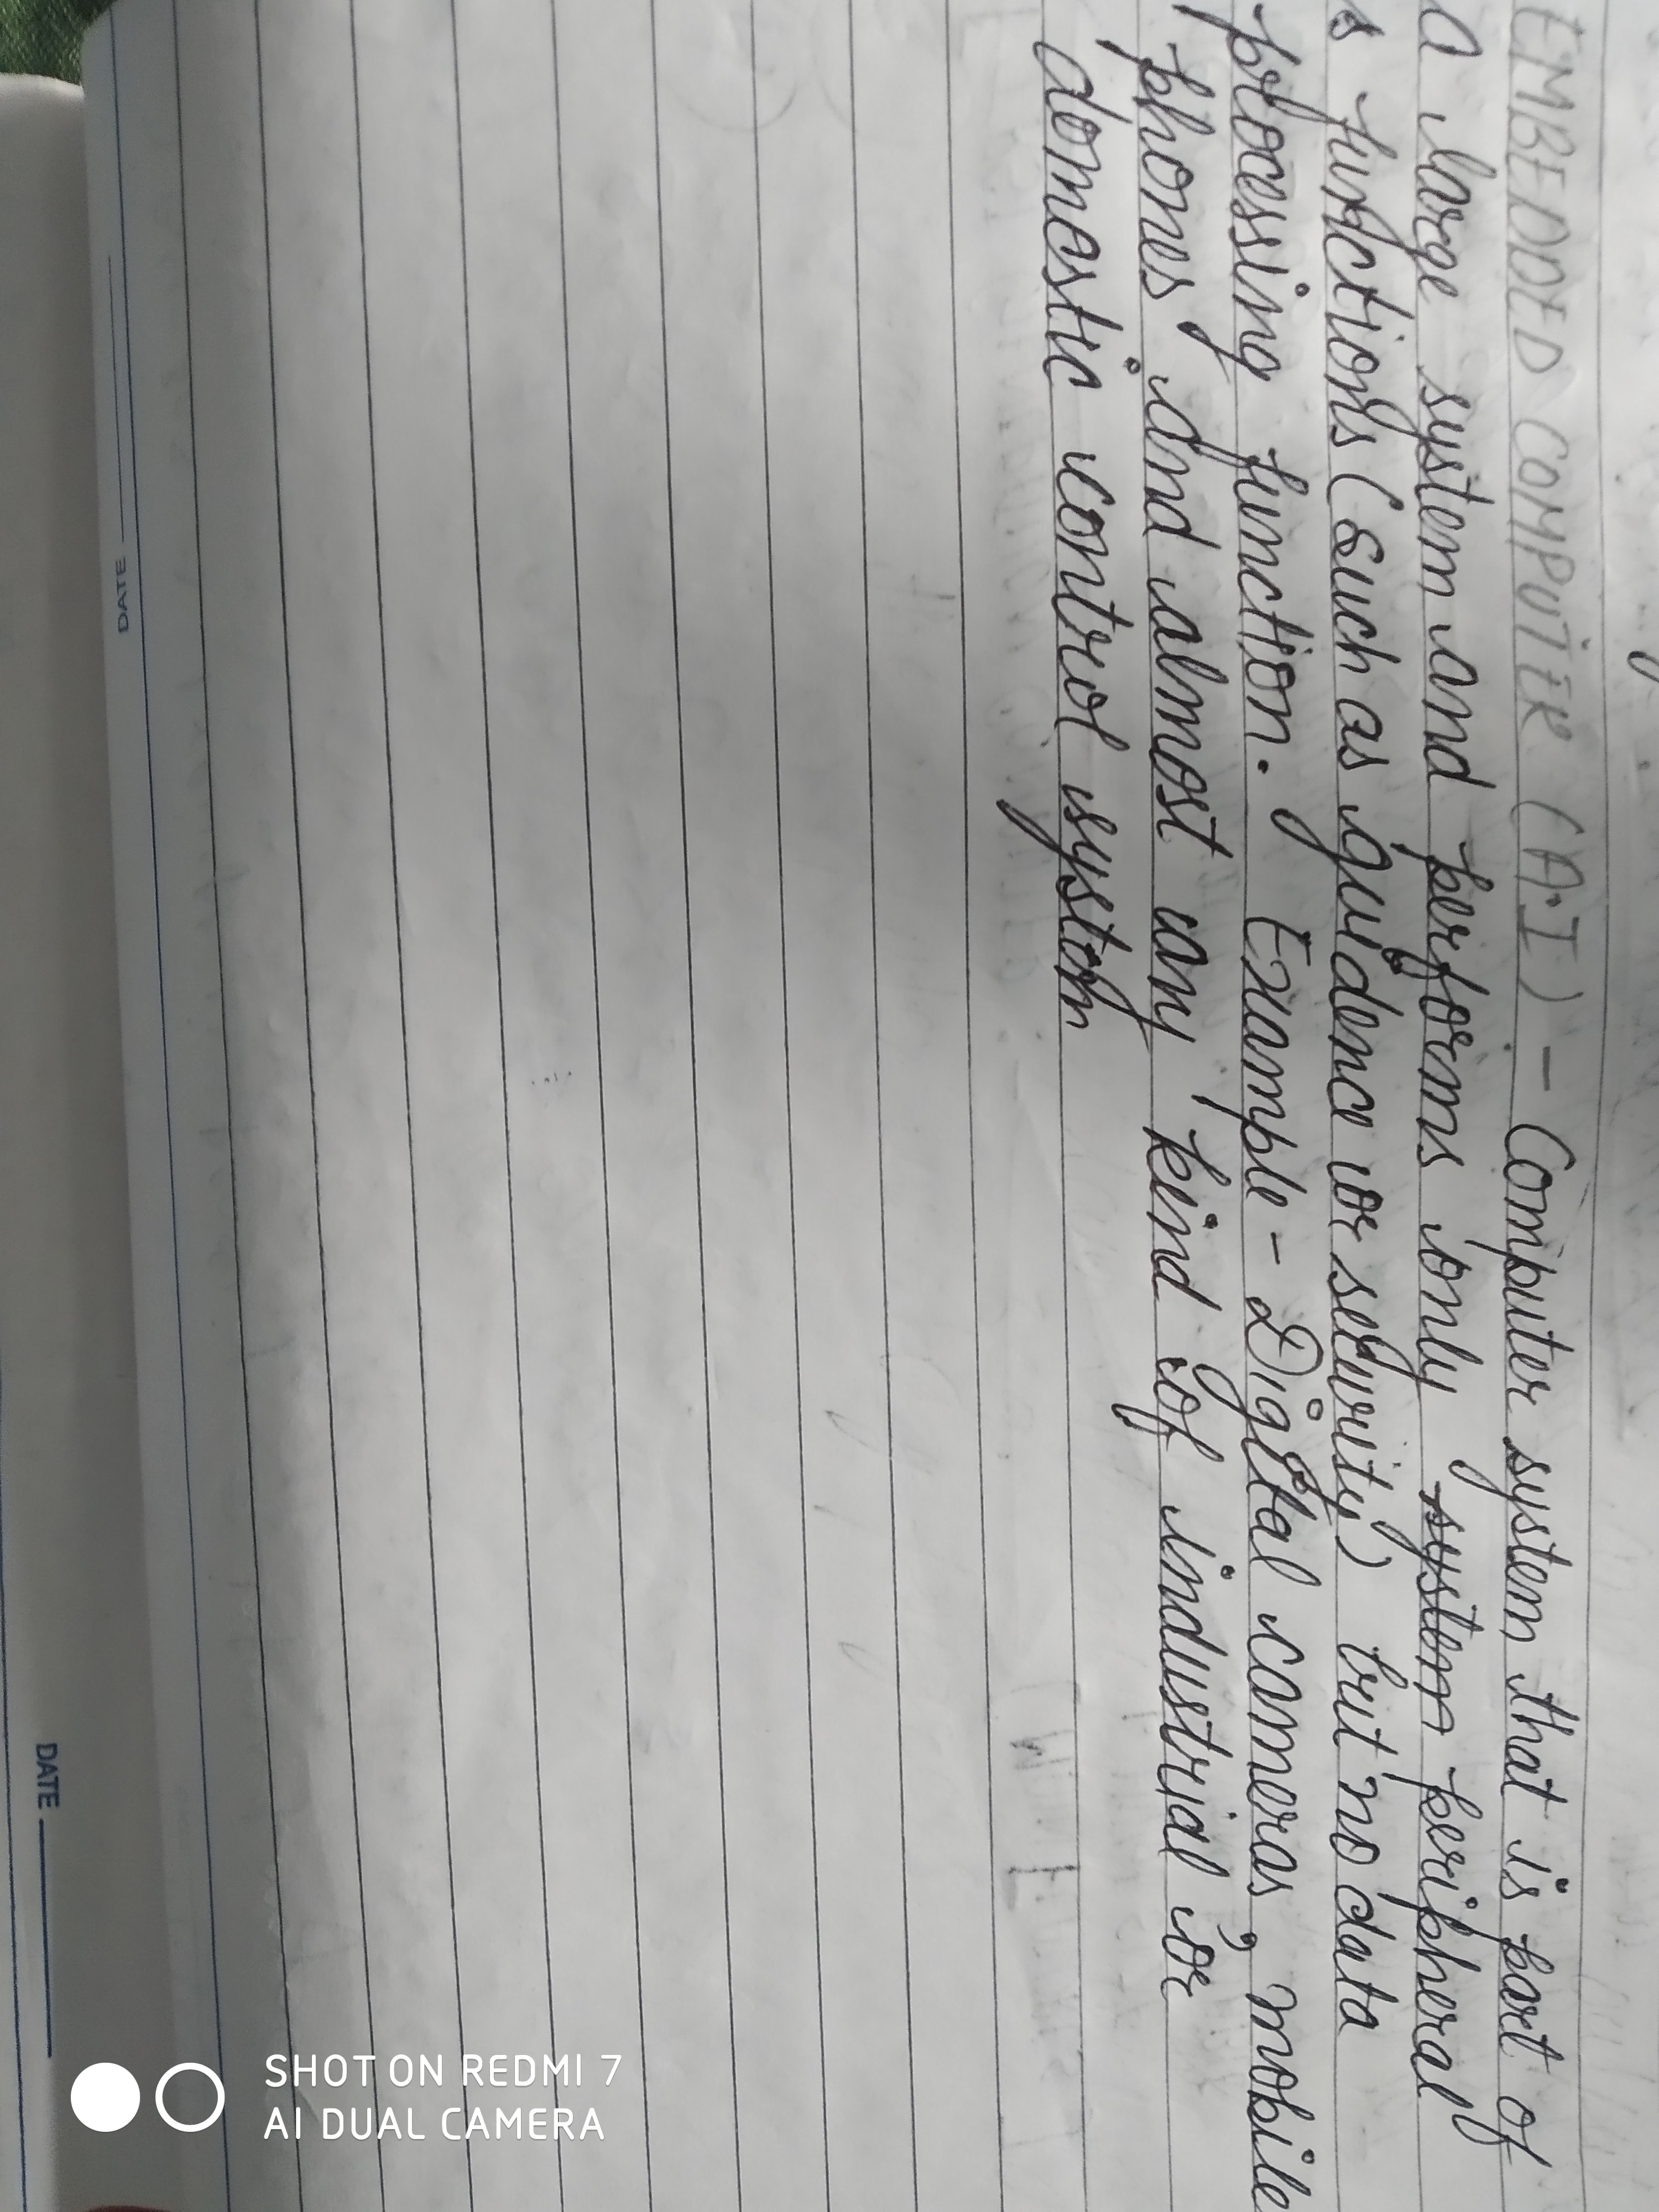 EMBEDDED COMPUTER (A.I) - Computer system that is part of
a large system and performs only system peripheral
s functions (Such as guidence or security) but no data
processing function. Example - Digital cameras, mobile
phones, and almost any kind of industrial or
domestic control system
DATE
DATE
SHOT ON REDMI 7
AI DUAL CAMERA